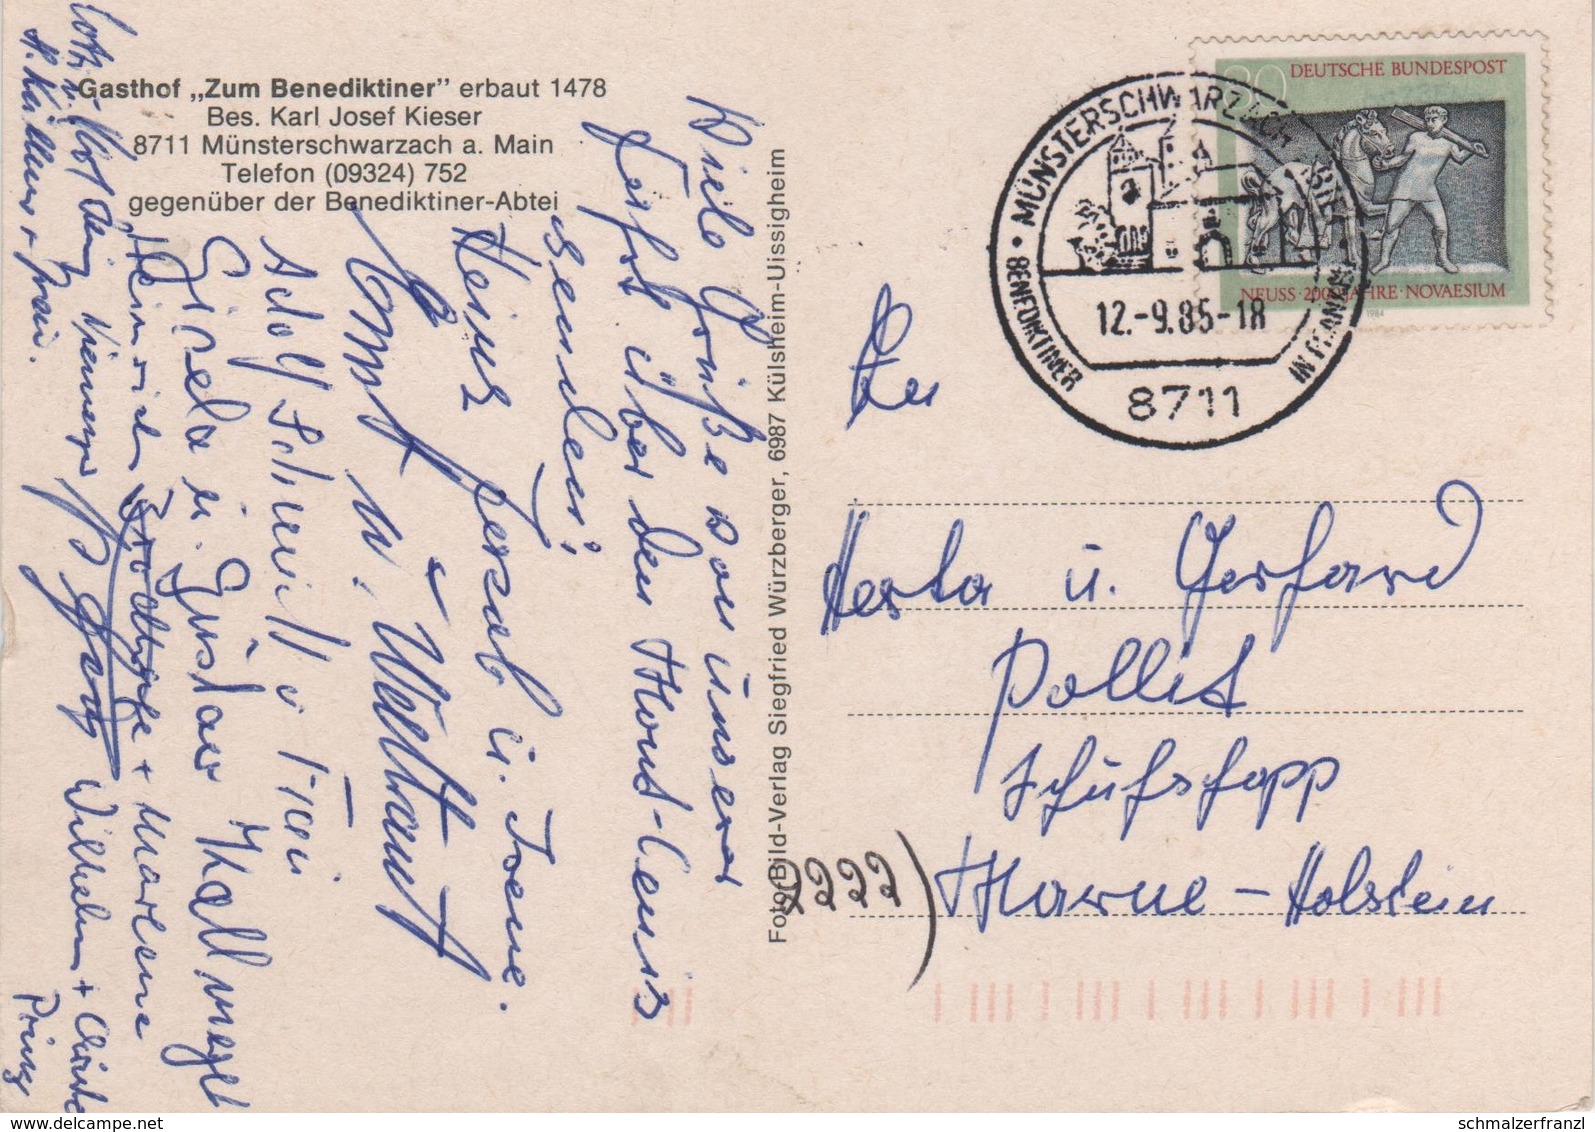 Gasthof „Zum Benediktiner” erbaut 1478
Bes. Karl Josef Kieser
8711 Münsterschwarzach a. Main
Telefon (09324) 752
gegenüber der Benediktiner-Abtei
Viele Grüße von unserer
Fahrt über den Mont-Cenis
senden:
Heinz u. Irene.
Horst u. Waltraut
Adolf Schmidt u. Frau
Gisela u. Gustav
Heinrich + Marlene
Wilhelm +
Prinz
+ Frau.
Foto+Bild-Verlag Siegfried Würzberger, 6987 Külsheim-Uissigheim
DEUTSCHE BUNDESPOST
80
NEUSS · 2000 JAHRE · NOVAESIUM
1984
MÜNSTERSCHWARZACH ABTEI
BENEDIKTINER
IN FRANKEN
12.-9.85-18
8711
An
Herta u. Gerhard
Pollit
Schüfstopp
2222) Marne-Holstein
schmalzerfranzl